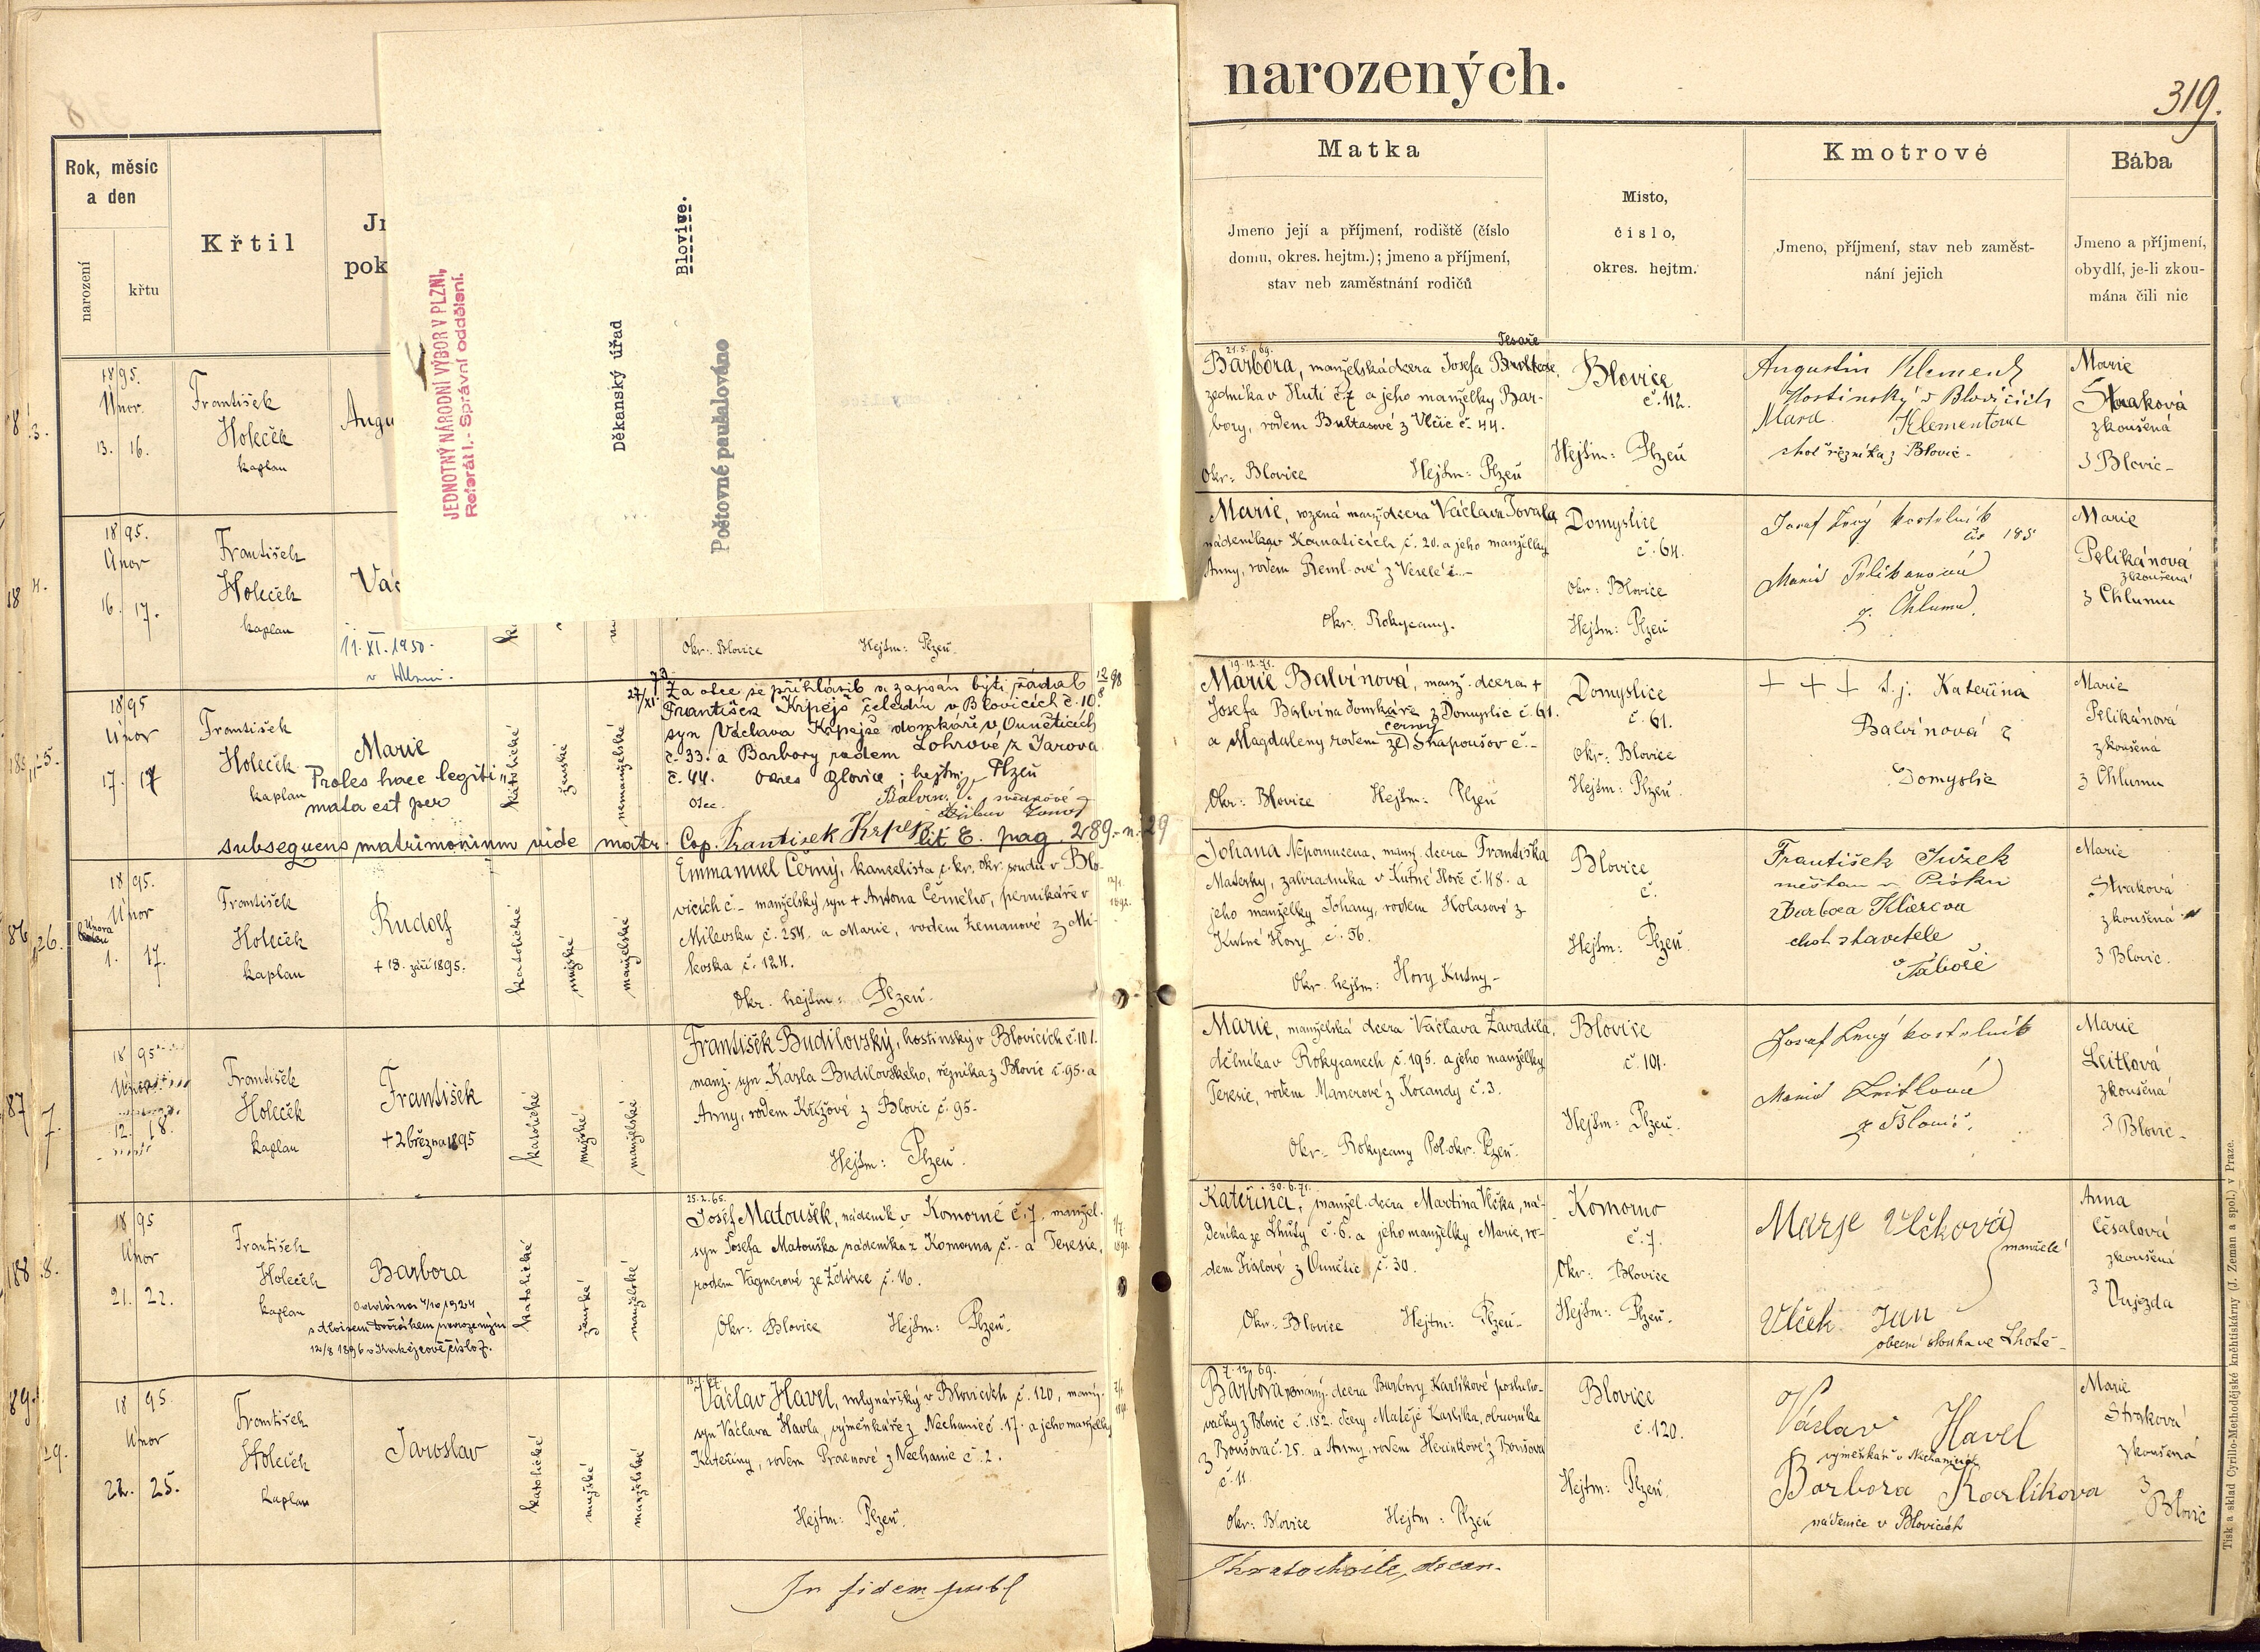 narozených.
319.
Rok, měsíc
a den
narození
křtu
Křtil
Jm
pok
JEDNOTNÝ NÁRODNÍ VÝBOR V PLZNI,
Referát I.- Správní oddělení.
Děkanský úřad
Blovice.
Poštovné paušalováno
Matka
Jmeno její a příjmení, rodiště (číslo
domu, okres. hejtm.); jmeno a příjmení,
stav neb zaměstnání rodičů
Místo,
číslo,
okres. hejtm.
Kmotrové
Jmeno, příjmení, stav neb zaměst-
nání jejich
Bába
Jmeno a příjmení,
obydlí, je-li zkou-
mána čili nic
1895.
Únor
13. 16.
František
Holeček
kaplan
Augu
21.5.69.
Barbora, manželská dcera Josefa
zedníka v Huti č. 7 a jeho manželky Bar-
bory, rodem Bultasové z Vlčic č. 44.
Okr: Blovice Hejtm: Plzeň
Blovice
č. 112.
Hejtm: Plzeň
Augustin Klement
Hostinský v Blovicích
Klementova
choť řezníka z Blovic
Marie
Straková
zkoušená
z Blovic
1895.
Únor
16. 17.
František
Holeček
kaplan
Vác
11. XI. 1950.
Okr: Blovice Hejtm: Plzeň
Marie, rozená manž. dcera Václava
nádeníka v Kornaticích č. 20. a jeho manželky
Anny, rodem
Okr: Rokycany.
Domyslice
č. 64.
Okr: Blovice
Hejtm: Plzeň
Josef Levý kostelník
čís 185
Marie Pelikanová
z Chlumu
Marie
Pelikánová
zkoušená
z Chlumu
1895
Únor
17. 17
František
Holeček
kaplan
Marie
Proles haec legiti-
mata est per
subsequens matrimonium vide matr. Cop. lit E. pag. 289. n. 29
katolické
ženské
nemanželské
Za otce se přihlásil a zapsán býti žádal
František Krpejš čeledín v Blovicích č. 10.
syn Václava Krpejše domkáře v Ouněticích
č. 33. a Barbory rodem Lohrové z Jarova
č. 44. okres Blovice; hejtm. Plzeň
otec.
František Krpejš
19.12.71.
Marie Balvínová, manž. dcera +
Josefa Balvína domkáře z Domyslic č. 61.
a Magdaleny rodem Černé ze Štapoušov č. -
Okr: Blovice Hejtm: Plzeň
Domyslice
č. 61.
Okr: Blovice
Hejtm: Plzeň.
+ + + t. j. Kateřina
Balvínová z
Domyslic
Marie
Pelikánová
zkoušená
z Chlumu
1895.
Únor
1. 17.
František
Holeček
kaplan
Rudolf
+ 18. září 1895.
katolické
mužské
manželské
Emmanuel Černý, kancelista c. kr. okr. soudu v Blo-
vicích č - manželský syn + Antona Černého, perníkáře v
Milevsku č. 254. a Marie, rodem Zemanové z Mi-
levska č. 124.
Okr. hejtm: Plzeň.
Johana Nepomucena, manž. dcera Františka
Materky, zahradníka v Kutné Hoře č. 48. a
jeho manželky Johany, rodem Holasové z
Kutné Hory č. 56.
Okr. hejtm: Hory Kutny
Blovice
č.
Hejtm: Plzeň.
František
měšťan v Písku
Barbora
choť stavitele
v Táboře
Marie
Straková
zkoušená
z Blovic.
1895
Únor
12. 18.
František
Holeček
kaplan
František
+ 2 března 1895
katolické
mužské
manželské
František Budilovský, hostinský v Blovicích č. 101.
manž. syn Karla Budilovského, řezníka z Blovic č. 95. a
Anny, rodem Křížové z Blovic č. 95.
Hejtm: Plzeň.
Marie, manželská dcera Václava Zavadila,
dělníka v Rokycanech č. 195. a jeho manželky
Teresie, rodem Manerové z Kocandy č. 3.
Okr. Rokycany Pol. okr. Plzeň.
Blovice
č. 101.
Hejtm: Plzeň.
Josef Levý kostelník
Marie Leitlová
z Blovic.
Marie
Leitlová
zkoušená
z Blovic
1895
Únor
21. 22.
František
Holeček
kaplan
Barbora
Oddána 4/10 1924
s Aloisem Dvořákem narozeným
12/8 1896 v číslo 7.
katolické
ženské
manželské
25.2.65.
Josef Matoušek, nádeník v Komorně č. 7, manžel.
syn Josefa Matouška nádeníka z Komorna č. - a Teresie,
rodem Vagnerové ze Ždírce č. 16.
Okr: Blovice Hejtm: Plzeň.
30.6.71.
Kateřina, manžel. dcera Martina Vlčka, ná-
deníka ze Lhůty č. 6. a jeho manželky Marie, ro-
dem Fialové z Ounětic č. 30.
Okr: Blovice Hejtm: Plzeň
Komorno
č. 7.
Okr: Blovice
Hejtm: Plzeň.
Marje Vlčková
manželé
Vlček Jan
obecní sluha ve Lhotě
Anna
Česalová
zkoušená
z Oujezda
1895.
Únor
22. 25.
František
Holeček
Kaplan
Jaroslav
katolické
mužské
manželské
Václav Havel, mlynářský v Blovicích č. 120, manž.
syn Václava Havla, výměnkáře z Nechanic č. 17. a jeho manželky
Kateřiny, rodem Praenové z Nechanic č. 2.
Hejtm: Plzeň.
7.12.69.
Barbora, nemanž. dcera Barbory Karlíkové posluho-
vačky z Blovic č. 182. dcery Matěje Karlíka, obuvníka
z Boušova č. 25. a Anny, rodem Herinkové z Boušova
č. 11.
Okr: Blovice Hejtm: Plzeň
Blovice
č. 120.
Hejtm: Plzeň.
Václav Havel
výměnkář v Nechanicích
Barbora Karlíkova
nádenice v Blovicích
Marie
Straková
zkoušená
z Blovic
In fidem publ
decan.
Tisk a sklad Cyrillo-Methodějské kněhtiskárny (J. Zeman a spol.) v Praze.